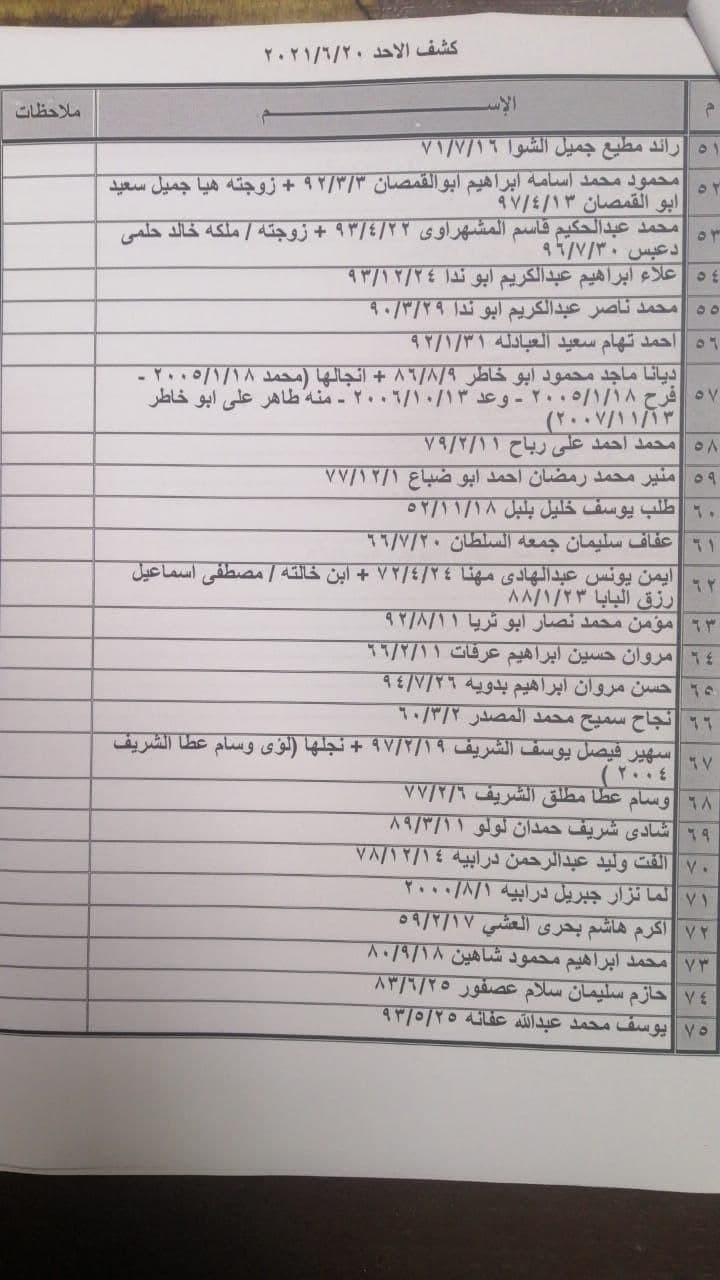 كشف الاحد ٢٠٢١/٦/٢٠
م الإســـــــم ملاحظات
٥١ رائد مطيع جميل الشوا ٧١/٧/١٦
٥٢ محمود محمد اسامه ابراهيم ابوالقمصان ٩٢/٣/٣ + زوجته هيا جميل سعيد
ابو القمصان ٩٧/٤/١٣
٥٣ محمد عبدالحكيم قاسم المشهراوى ٩٣/٤/٢٢ + زوجته / ملكه خالد حلمى
دعبس ٩٦/٧/٣٠
٥٤ علاء ابراهيم عبدالكريم ابو ندا ٩٣/١٢/٢٤
٥٥ محمد ناصر عبدالكريم ابو ندا ٩٠/٣/٢٩
٥٦ احمد تهام سعيد العبادله ٩٢/١/٣١
٥٧ ديانا ماجد محمود ابو خاطر ٨٦/٨/٩ + انجالها (محمد ٢٠٠٥/١/١٨ -
فرح ٢٠٠٥/١/١٨ - وعد ٢٠٠٦/١٠/١٣ - منه طاهر على ابو خاطر
٢٠٠٧/١١/١٣)
٥٨ محمد احمد على رباح ٧٩/٢/١١
٥٩ منير محمد رمضان احمد ابو ضباع ٧٧/١٢/١
٦٠ طلب يوسف خليل بلبل ٥٢/١١/١٨
٦١ عفاف سليمان جمعه السلطان ٦٦/٧/٢٠
٦٢ ايمن يونس عبدالهادى مهنا ٧٢/٤/٢٤ + ابن خالته / مصطفى اسماعيل
رزق البابا ٨٨/١/٢٣
٦٣ مؤمن محمد نصار ابو ثريا ٩٢/٨/١١
٦٤ مروان حسين ابراهيم عرفات ٦٦/٢/١١
٦٥ حسن مروان ابراهيم بدويه ٩٤/٧/٢٦
٦٦ نجاح سميح محمد المصدر ٦٠/٣/٢
٦٧ سهير فيصل يوسف الشريف ٩٧/٢/١٩ + نجلها (لؤى وسام عطا الشريف
٢٠٠٤ )
٦٨ وسام عطا مطلق الشريف ٧٧/٢/٦
٦٩ شادى شريف حمدان لولو ٨٩/٣/١١
٧٠ الفت وليد عبدالرحمن درابيه ٧٨/١٢/١٤
٧١ لما نزار جبريل درابيه ٢٠٠٠/٨/١
٧٢ اكرم هاشم بحرى العشي ٥٩/٢/١٧
٧٣ محمد ابراهيم محمود شاهين ٨٠/٩/١٨
٧٤ حازم سليمان سلام عصفور ٨٣/٦/٢٥
٧٥ يوسف محمد عبدالله عفانه ٩٣/٥/٢٥